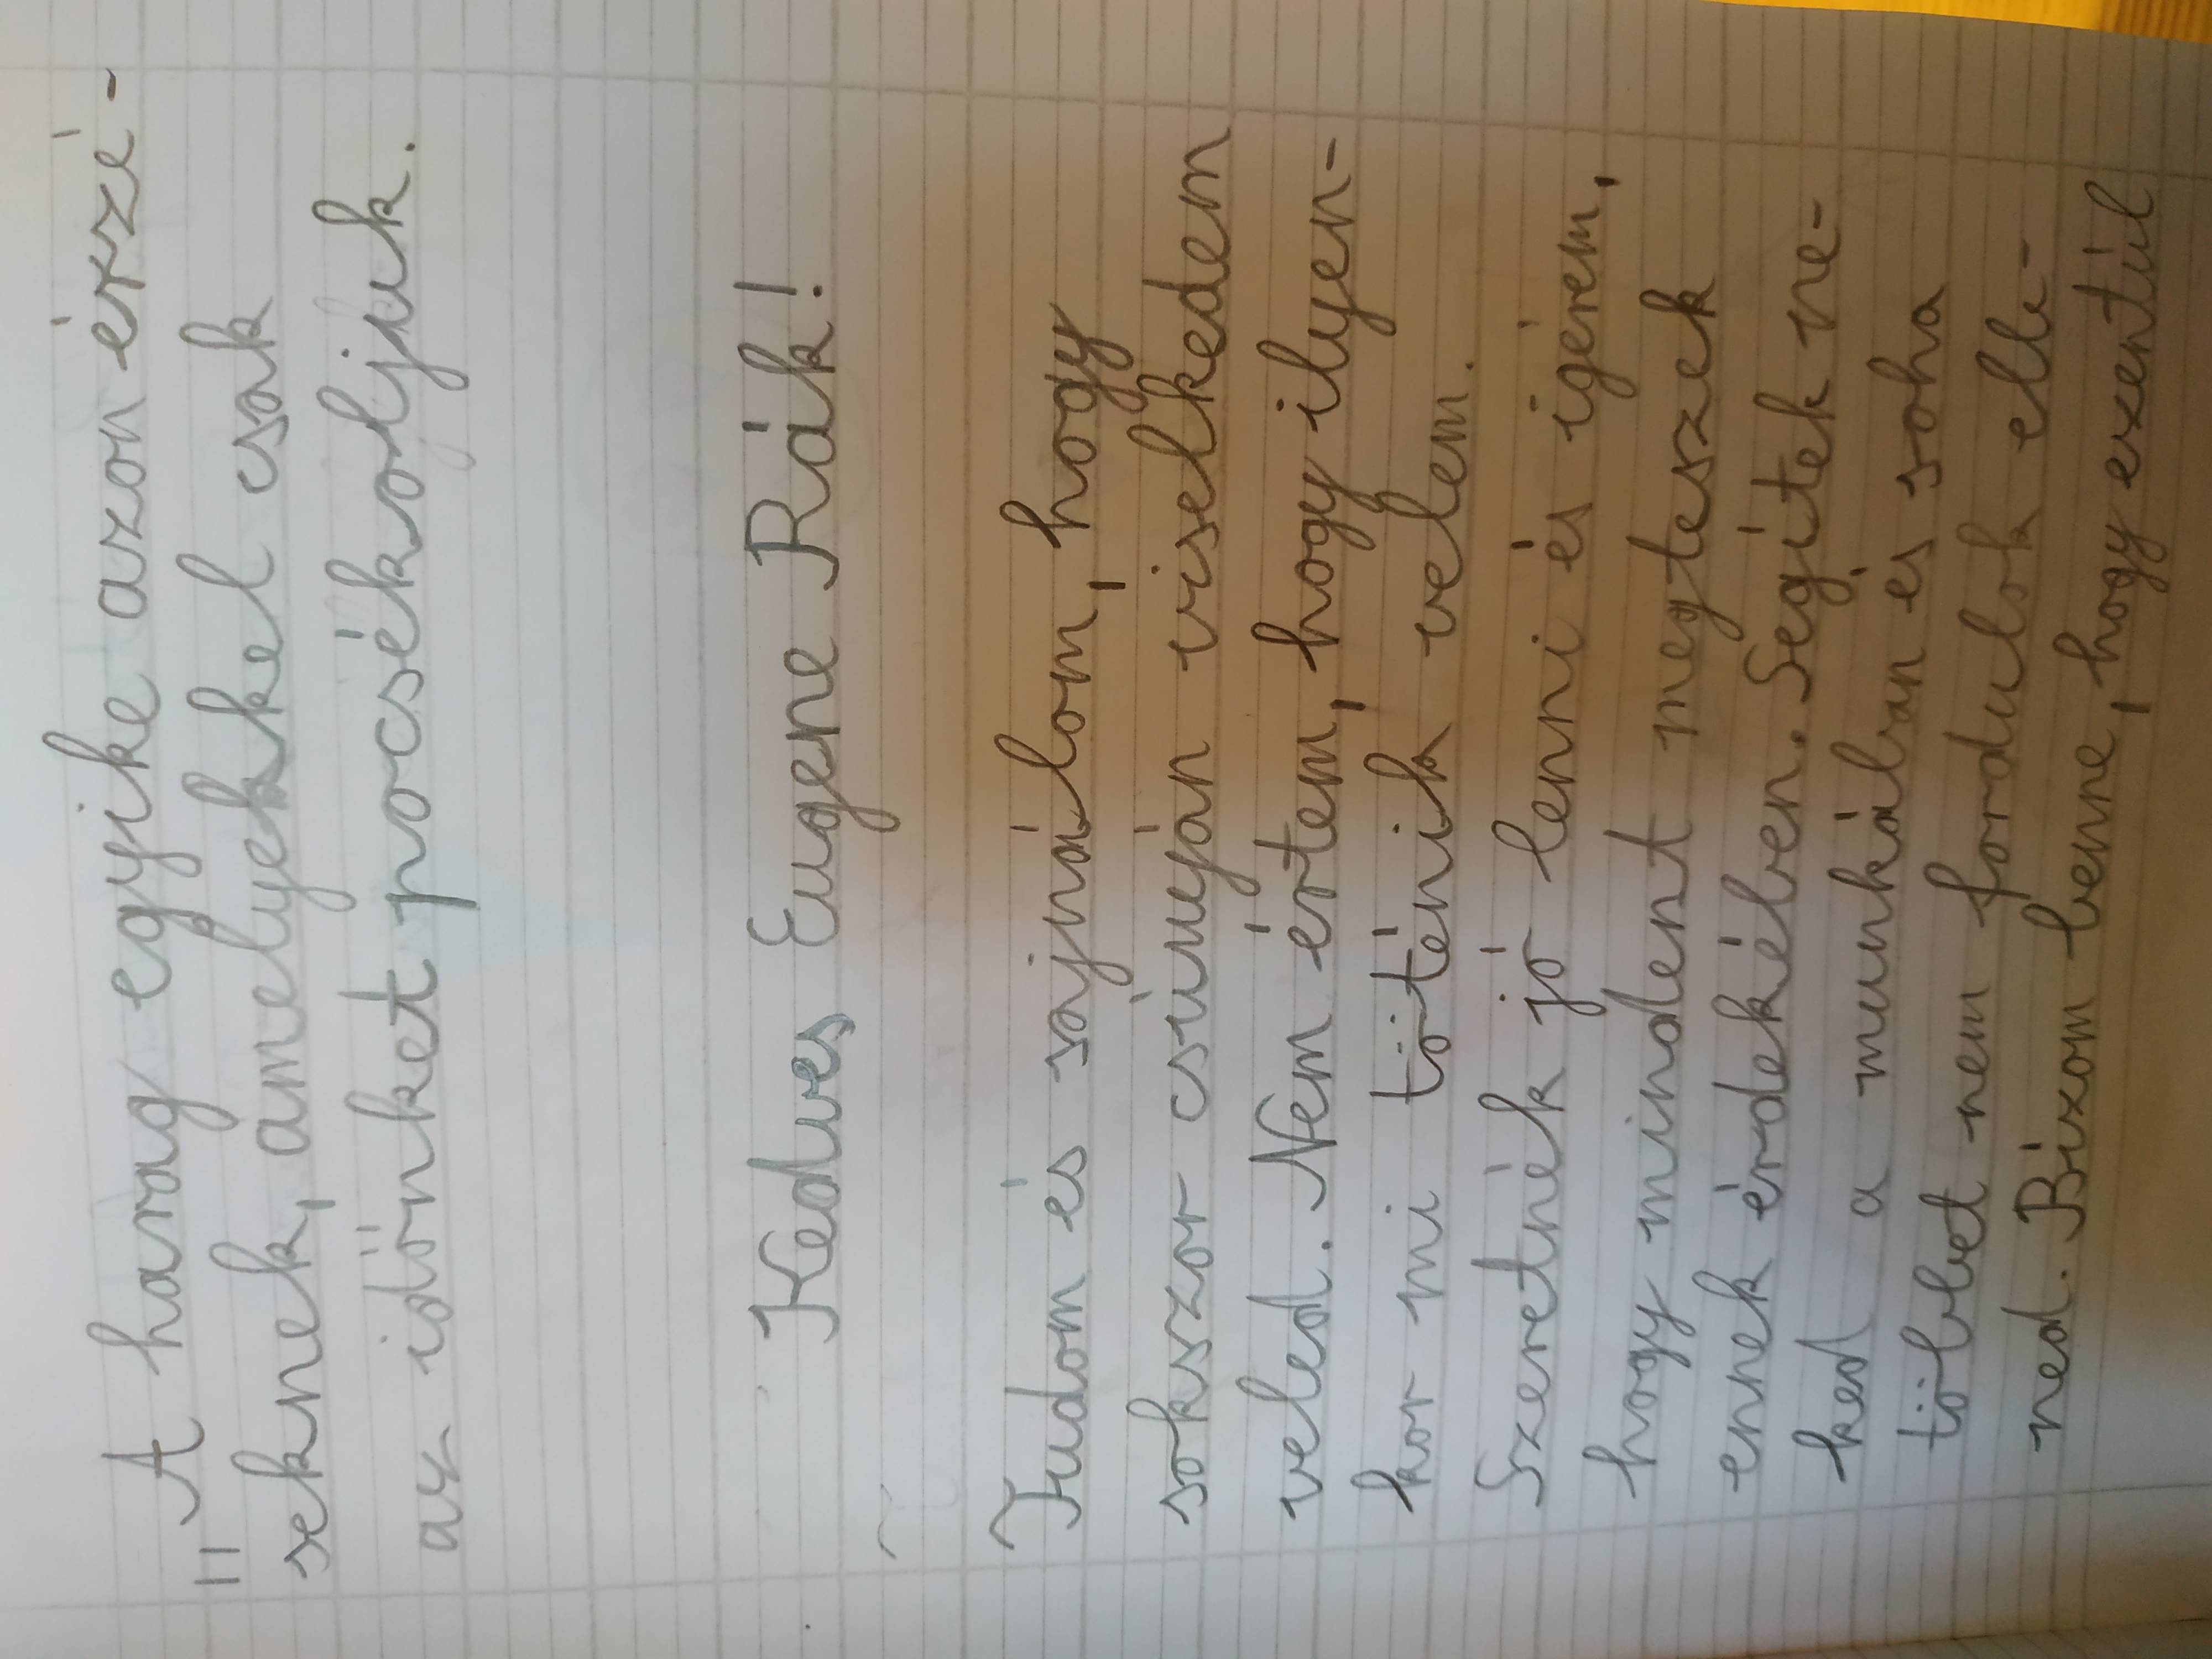 "A harag egyike azon érzé-
seknek, amelyekkel csak
az időnket pocsékoljuk.
Kedves Eugene Rák!
Tudom és sajnálom, hogy
sokszor csúnyán viselkedem
veled. Nem értem, hogy ilyen-
kor mi töténik velem.
Szeretnék jó lenni és igérem,
hogy mindent megteszek
ennek érdekében. Segítek ne-
ked a munkában és soha
többet nem fordulok elle-
ned. Bízom benne, hogy ezentúl